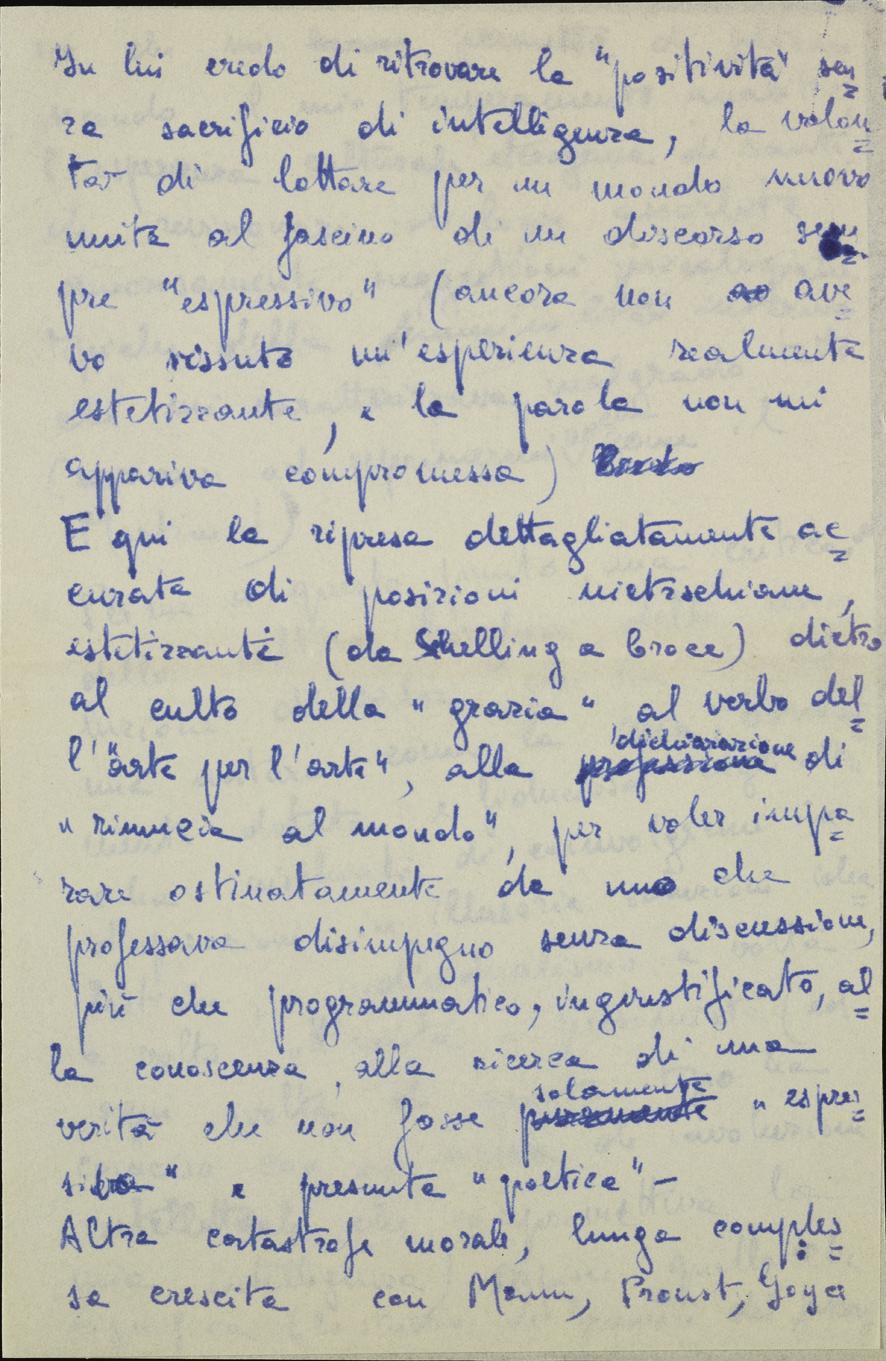 In lui credo di ritrovare la "positività" sen=
za sacrificio di intelligenza, la volon=
tà di lottare per un mondo nuovo
unita al fascino di un discorso sem=
pre "espressivo" (ancora non ave=
vo vissuto un'esperienza realmente
estetizzante, e la parola non mi
appariva compromessa)
E qui la ripresa dettagliatamente ac=
curata di posizioni nietzschiane,
estetizzanti (da Schelling a Croce) dietro
al culto della "grazia", al verbo del=
l'"arte per l'arte", alla dichiarazione di
"rinuncia al mondo", per voler impa=
rare ostinatamente da uno che
professava disimpegno senza discussione,
più che programmatico, ingiustificato, al=
la conoscenza, alla ricerca di una
verità che non fosse solamente "espres=
siva" e presunta "poetica" –
Altra catastrofe morale, lunga comples=
sa crescita con Mann, Proust, Goya